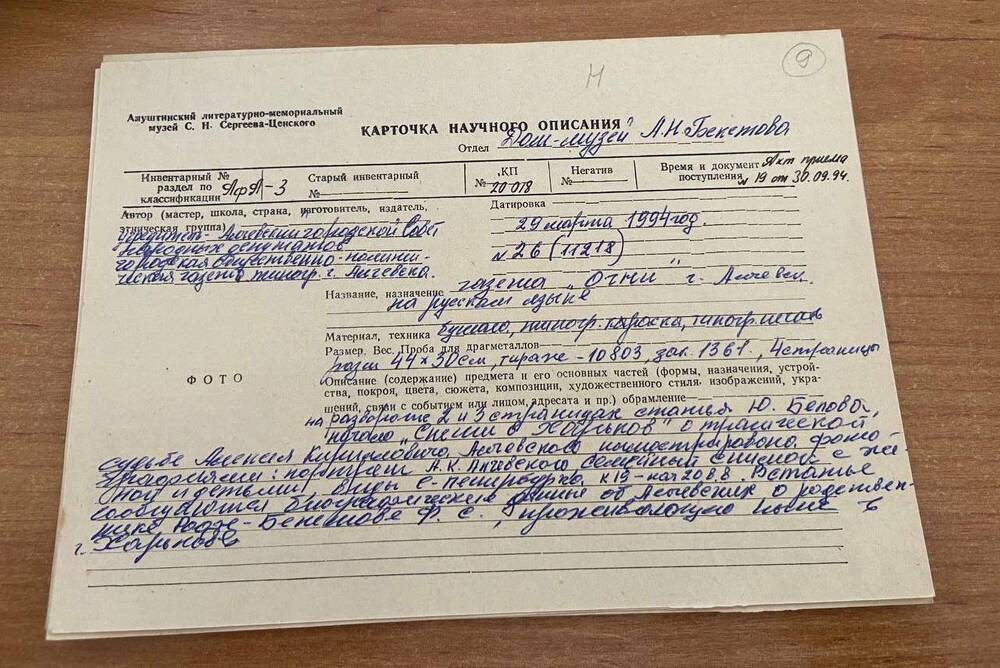 9
Н
Алуштинский литературно-мемориальный
музей С. Н. Сергеева-Ценского
КАРТОЧКА НАУЧНОГО ОПИСАНИЯ
Отдел Дом-музей А.Н. Бекетова
Инвентарный №
раздел по
классификации
АФА-3
Старый инвентарный
№
КП
№ 20 018
Негатив
№
Время и документ
поступления
Акт приема
№ 19 от 30.09.94.
Автор (мастер, школа, страна, изготовитель, издатель,
этническая группа)
учредитель - Алчевский городской Совет
народных депутатов
городская общественно-полити-
ческая газета типогр. г. Алчевска.
Датировка
29 марта 1994 год.
№ 26 (11218)
Название, назначение газета "Огни" г. Алчевск
на русском языке
Материал, техника бумага, типогр. краска, типогр. печать
Размер. Вес. Проба для драгметаллов
разм 44х30см, тираж - 10803, зак. 1361, 4 страницы
Описание (содержание) предмета и его основных частей (формы, назначения, устрой-
ства, покроя, цвета, сюжета, композиции, художественного стиля изображений, укра-
шений, связи с событием или лицом, адресата и пр.) обрамление
ФОТО
на развороте 2 и 3 страницах статья Ю. Белова,
начало "Спеши в Харьков" о трагической
судьбе Алексея Кирилловича Алчевского иллюстрирована фото
графиями: портрет А.К. Алчевского семейный снимок с же-
ной и детьми, виды С-Петербурга к 19 - нач 20 в.в. В статье
сообщаются биографические данные об Алчевских о родствен-
нике - Бекетове Ф. С., проживающем ныне в
г. Харькове